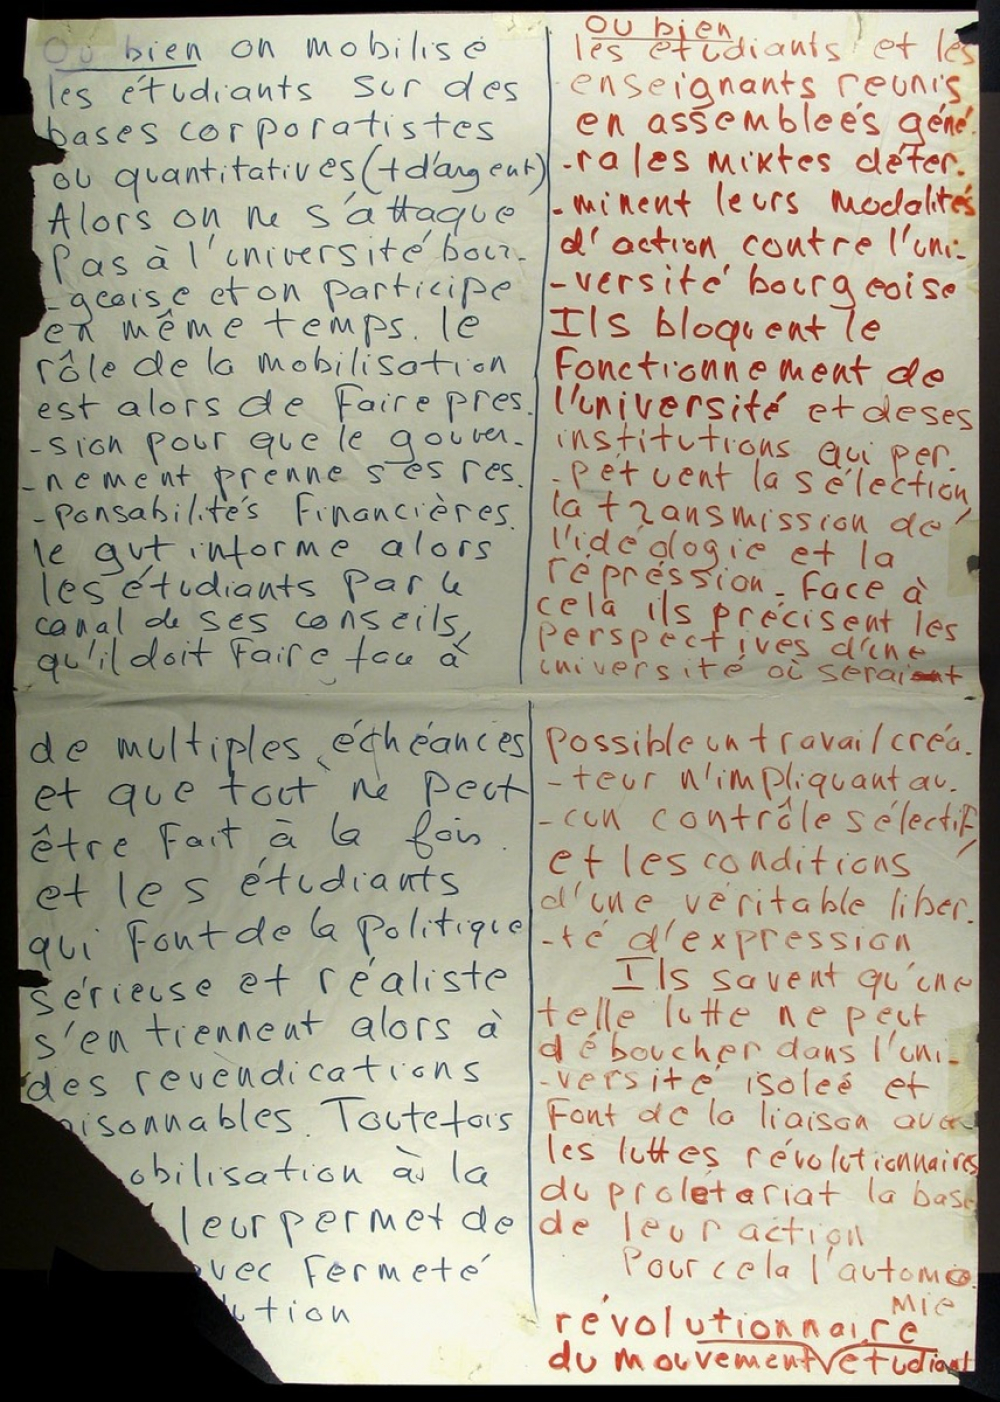 Ou bien on mobilise
les étudiants sur des
bases corporatistes
ou quantitatives (+ d'argent)
Alors on ne s'attaque
Pas à l'université bour-
-geoise et on participe
en même temps. le
rôle de la mobilisation
est alors de Faire pres.
-sion pour que le gouver-
-nement prenne ses res.
-ponsabilités Financières.
le gvt informe alors
les étudiants par le
canal de ses conseils,
qu'il doit Faire face à
de multiples échéances
et que tout ne peut
être Fait à la fois.
et les étudiants
qui Font de la politique
sérieuse et réaliste
s'en tiennent alors à
des revendications
aisonnables. Toutefois
obilisation à la
leur permet de
vec Fermeté
ution
Ou bien
les étudiants et les
enseignants réunis
en assembleés géné.
-rales mixtes déter.
-minent leurs modalités
d'action contre l'uni-
-versité bourgeoise
Ils bloquent le
Fonctionnement de
l'université et de ses
institutions qui per.
-pétuent la sélection,
la transmission de
l'idéologie et la
répréssion - Face à
cela ils précisent les
perspectives d'une
université où serai
possible un travail créa.
-teur n'impliquant au.
-cun contrôle sélectif,
et les conditions
d'une véritable liber.
-té d'expression
Ils savent qu'une
telle lutte ne peut
déboucher dans l'uni-
-versité isoleé et
Font de la liaison avec
les luttes révolutionnaires
du prolétariat la base
de leur action
Pour cela l'autono.
mie
révolutionnaire
du mouvement étudiant